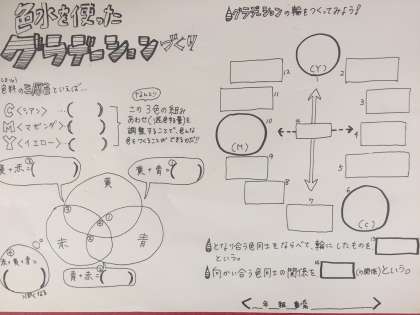 色水を使った
グラデーションづくり
色料の三原色といえば…
C〈シアン〉…( )
M〈マゼンダ〉( )
Y〈イエロー〉…( )
なんと!!
この3色の組み
あわせ(混色割合量)を
調整することで、色んな
色をつくることができるのだ!!
黄+赤=( )
黄+青=( )
黄
赤
青
青+赤=( )
赤+黄+青=
( )
グラデーションの輪をつくってみよう!
(Y)
1
12
2
11
3
10
(M)
4
9
5
8
6
(C)
7
となり合う色同士をならべて、輪にしたものを、
という。
向かい合う色同士の関係を
(の関係)という。
年 組 番 名前